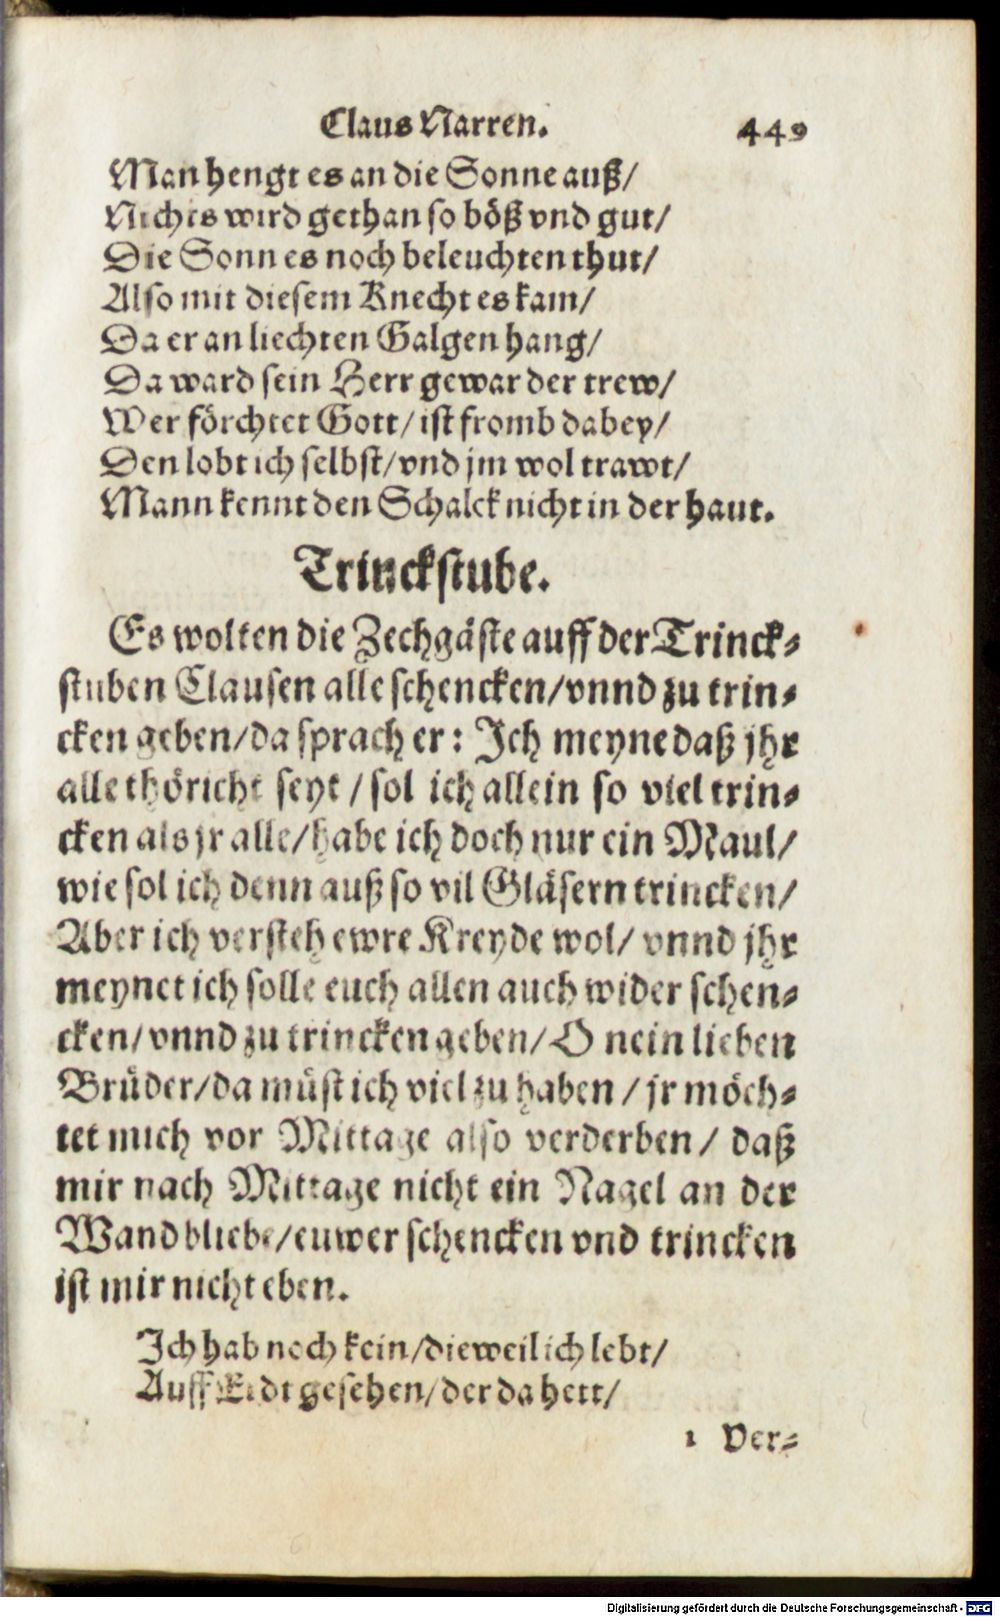 Claus Narren. 449
Man hengt es an die Sonne auß/
Nichts wird gethan so böß vnd gut/
Die Sonn es noch beleuchten thut/
Also mit diesem Knecht es kam/
Da er an liechten Galgen hang/
Da ward sein Herr gewar der trew/
Wer förchtet Gott/ ist fromb dabey/
Den lobt ich selbst/ vnd jm wol trawt/
Mann kennt den Schalck nicht in der haut.
Trinckstube.
Es wolten die Zechgäste auff der Trinck-
stuben Clausen alle schencken/ vnnd zu trin-
cken geben/ da sprach er: Ich meyne daß jhr
alle thöricht seyt / sol ich allein so viel trin-
cken als jr alle/ habe ich doch nur ein Maul/
wie sol ich denn auß so vil Gläsern trincken/
Aber ich versteh ewre Kreyde wol/ vnnd jhr
meynet ich solle euch allen auch wider schen-
cken/ vnnd zu trincken geben/ O nein lieben
Brüder/ da müst ich viel zu haben / jr möch-
tet mich vor Mittage also verderben/ daß
mir nach Mittage nicht ein Nagel an der
Wand bliebe/ euwer schencken vnd trincken
ist mir nicht eben.
Ich hab noch kein/ dieweil ich lebt/
Auff Erdt gesehen/ der da hett/
1 Ver-
Digitalisierung gefördert durch die Deutsche Forschungsgemeinschaft - DFG